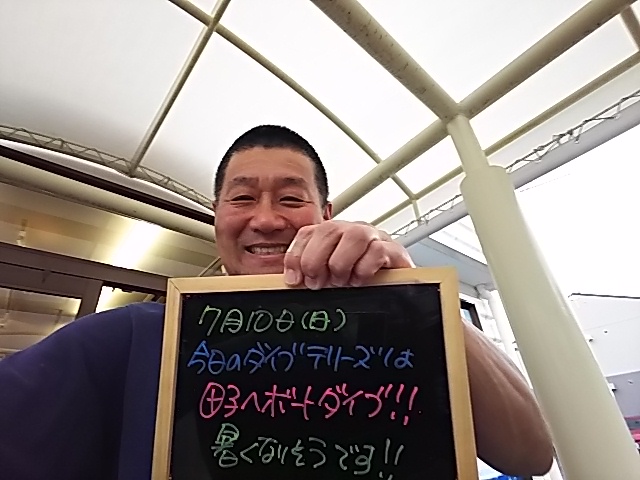 7月10日(日)
今日のダイブテリーズは
田子へボートダイブ!!!
暑くなりそうです!!